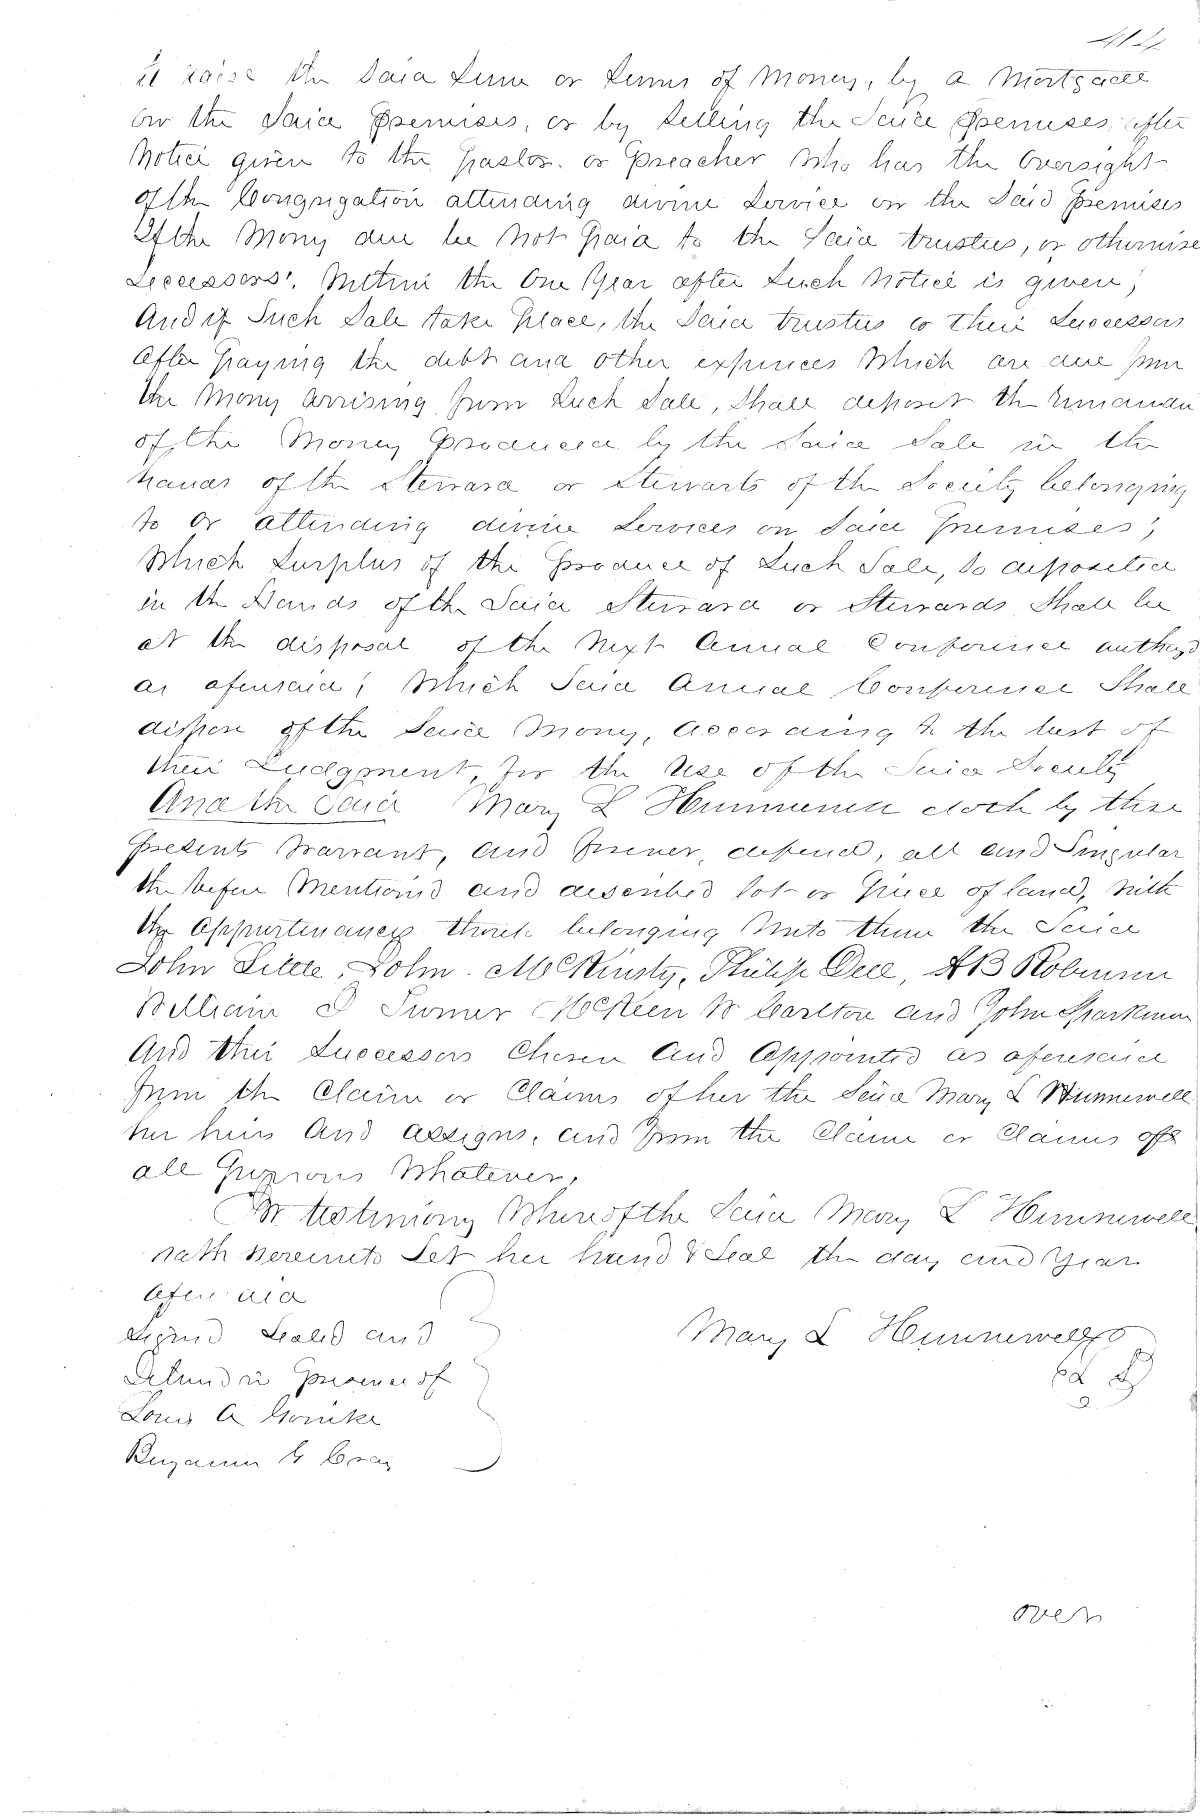 414
to raise the said sum or sums of Money, by a Mortgage
on the Said Premises, or by Selling the Said Premises, after
Notice given to the Pastor or Preacher who has the Oversight
of the Congregation attending divine Service on the Said Premises
If the Mony due be Not Paid to the Said trustees, or otherwise
Successors', Within the One Year after Such Notice is given;
And if Such Sale take Place, the Said trustees or their Successors
After Paying the debt and other expences Which are due from
the Mony arrising from Such Sale, Shall deposet the remainder
of the Money Produced by the Said Sale in the
hands of the Steward or Stewarts of the Society belonging
to or attending divine Services on Said Premises;
Which Surplus of the Produce of Such Sale, So deposited
in the Hands of the Said Steward or Stewards Shall be
at the disposal of the Next Annual Conference
as aforesaid; Which Said Annual Conference Shall
dispose of the Said Mony, according to the best of
their Judgment, for the Use of the Said Society
And the Said Mary L Hunnewell doth by these
Presents Warrant, and forever, defend, all and Singular
the before Mentioned and described lot or Piece of land, with
the Appurtenances thereto belonging Unto them the Said
John Little, John McKinsty, Philip Dell, AB Robinson
William I Turner McKeen W Carlton and John Sparkman
And their Successors Chosen and Appointed as aforesaid
from the Claim or Claims of her the Said Mary L Hunnewell
her heirs And assigns, and from the Claim or Claims of
all Persons Whatever,
In testimony Whereof the Said Mary L Hunnewell
hath hereunto Set her hand & Seal the day and Year
aforesaid
Signed Sealed and
Mary L Hunnewell
Deliverd in Presence of
Louis A
Benjamin G
over